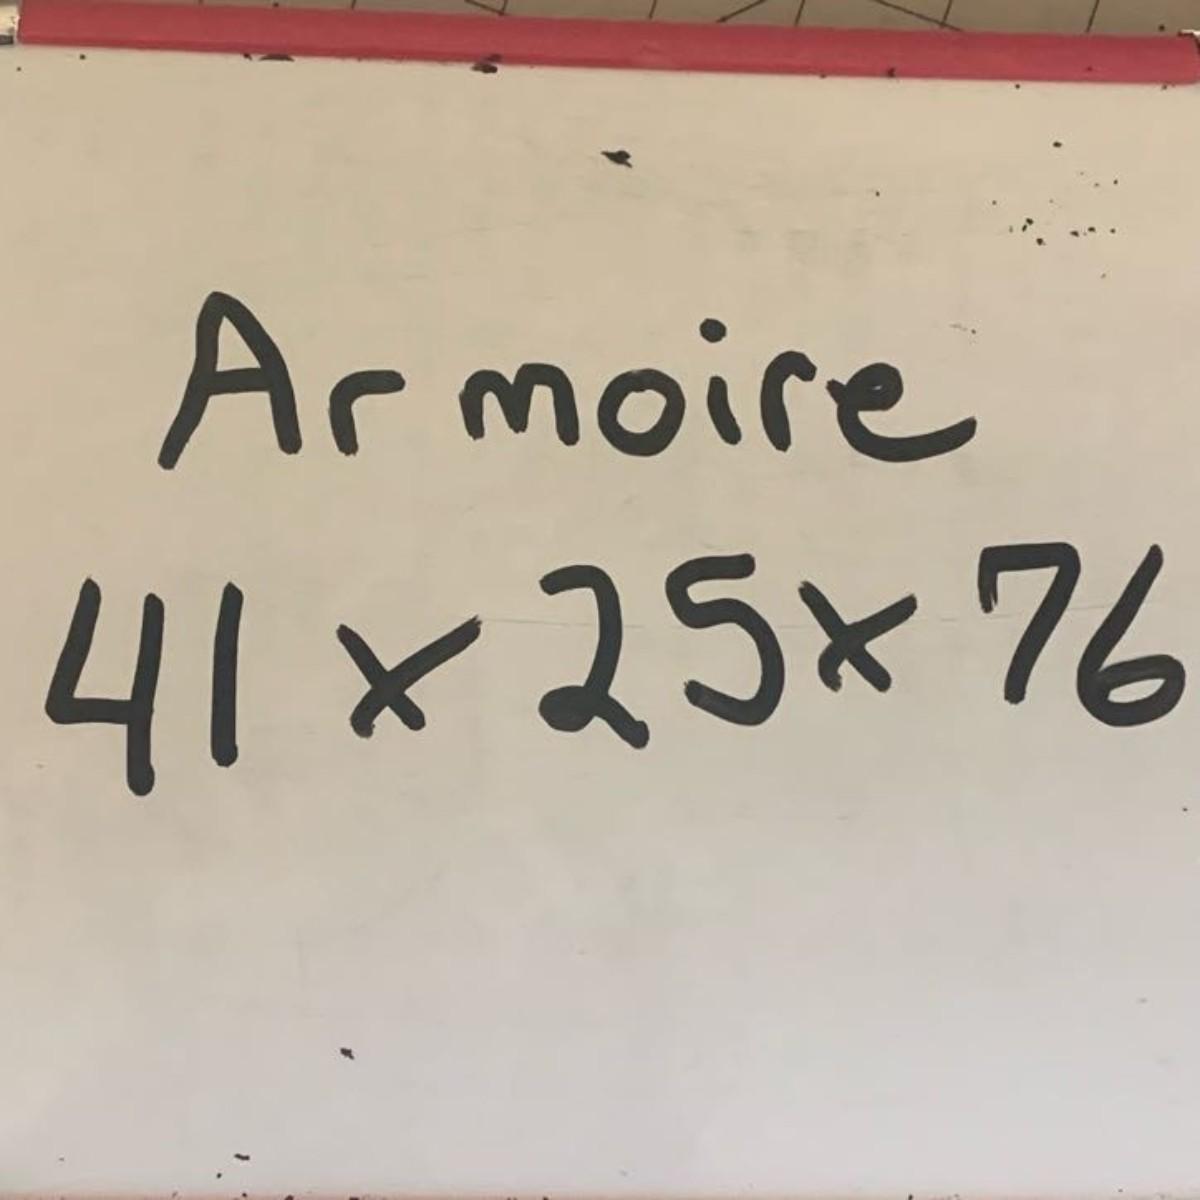 Armoire
41 x 25 x 76